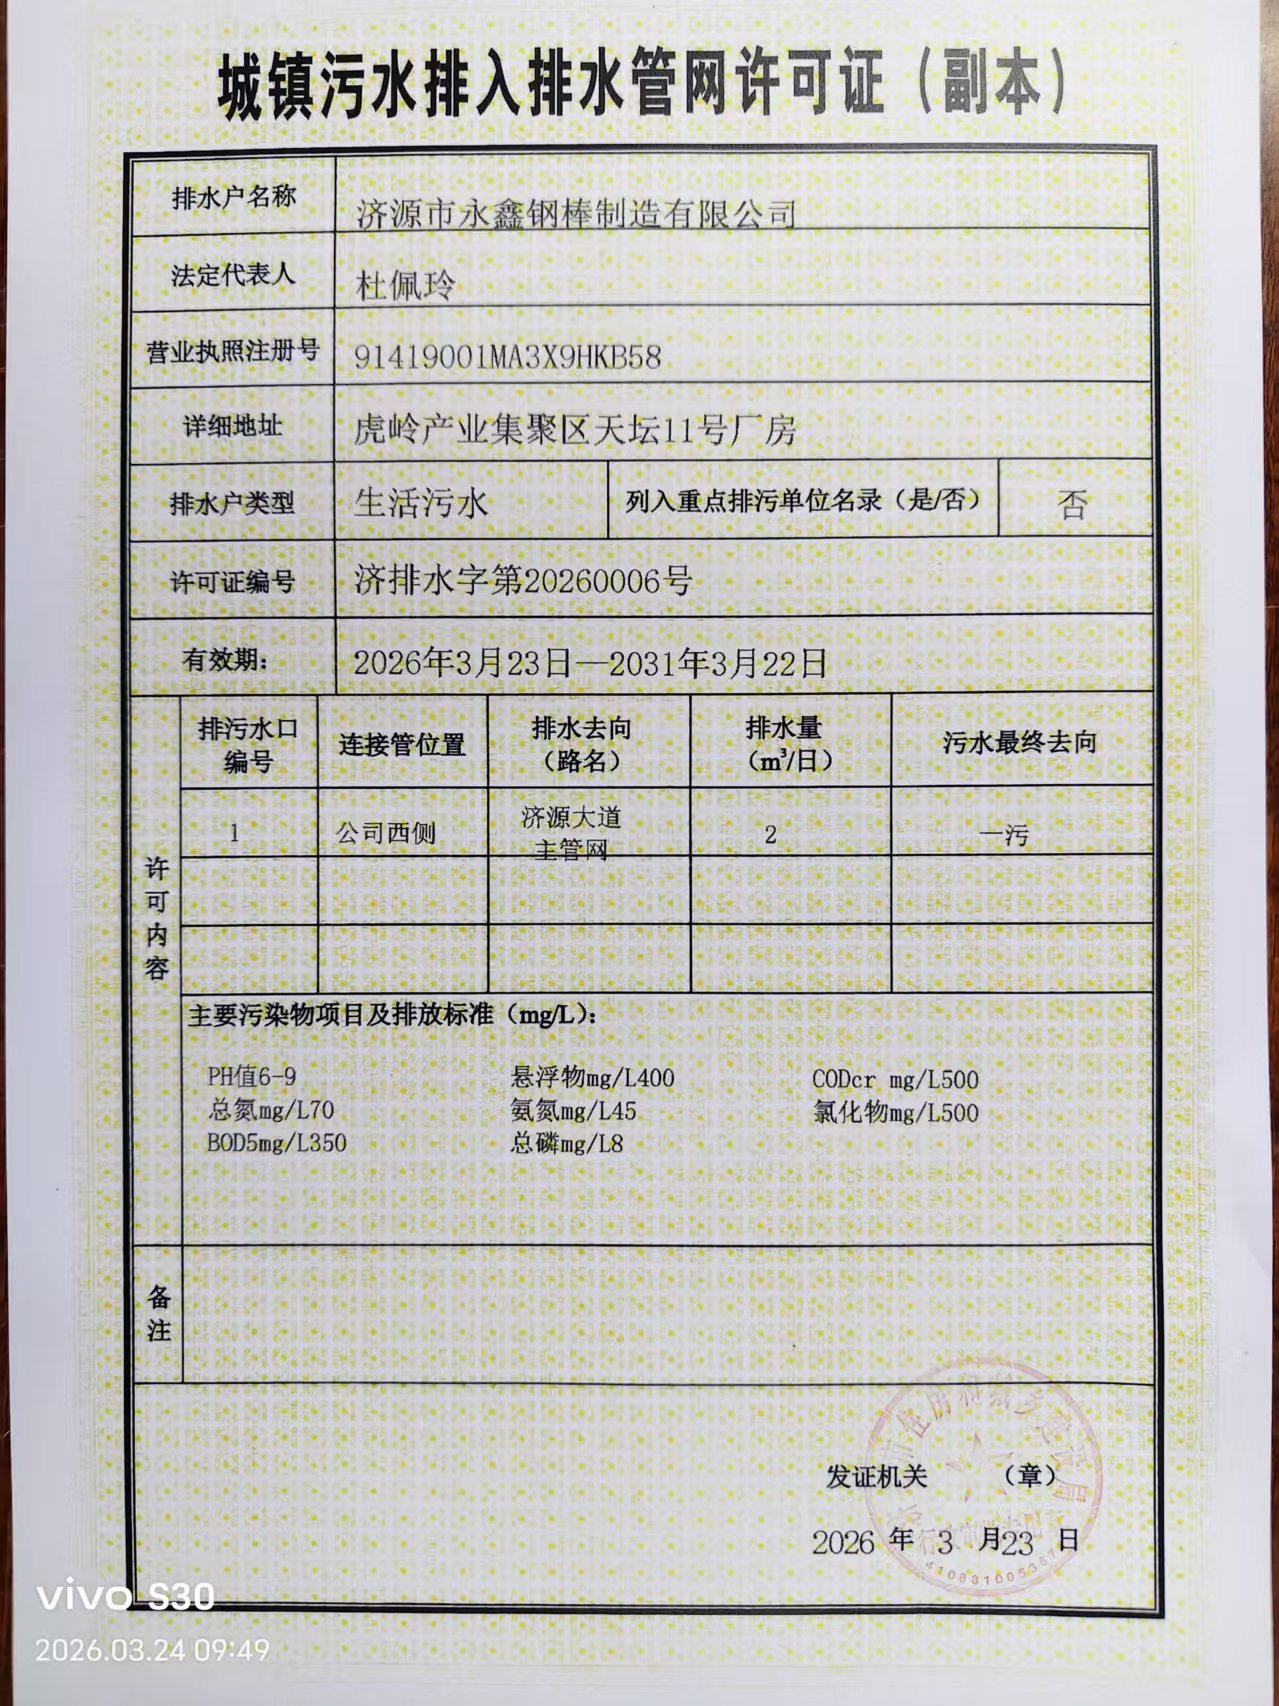 城镇污水排入排水管网许可证（副本）
排水户名称 济源市永鑫钢棒制造有限公司
法定代表人 杜佩玲
营业执照注册号 91419001MA3X9HKB58
详细地址 虎岭产业集聚区天坛11号厂房
排水户类型 生活污水 列入重点排污单位名录（是/否） 否
许可证编号 济排水字第20260006号
有效期： 2026年3月23日—2031年3月22日
许可内容
排污水口编号 连接管位置 排水去向（路名） 排水量（m³/日） 污水最终去向
1 公司西侧 济源大道主管网 2 一污
主要污染物项目及排放标准（mg/L）：
PH值6-9 悬浮物mg/L400 CODcr mg/L500
总氮mg/L70 氨氮mg/L45 氯化物mg/L500
BOD5mg/L350 总磷mg/L8
备注
发证机关 （章）
2026 年 3 月23 日
市住房和城乡建设局
vivo S30
2026.03.24 09:49